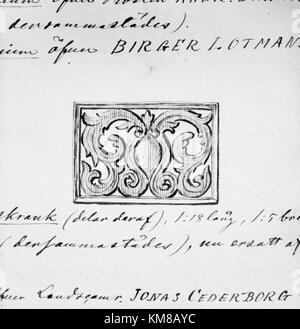 densammastädes).
öfver BIRGER LOTMAN
skrank (delar deraf), 1:18 lång, 1:5 bre
(densammastädes), nu ersatt af
öfver Landscam. JONAS CEDERBORG
alamy
KM8AYC